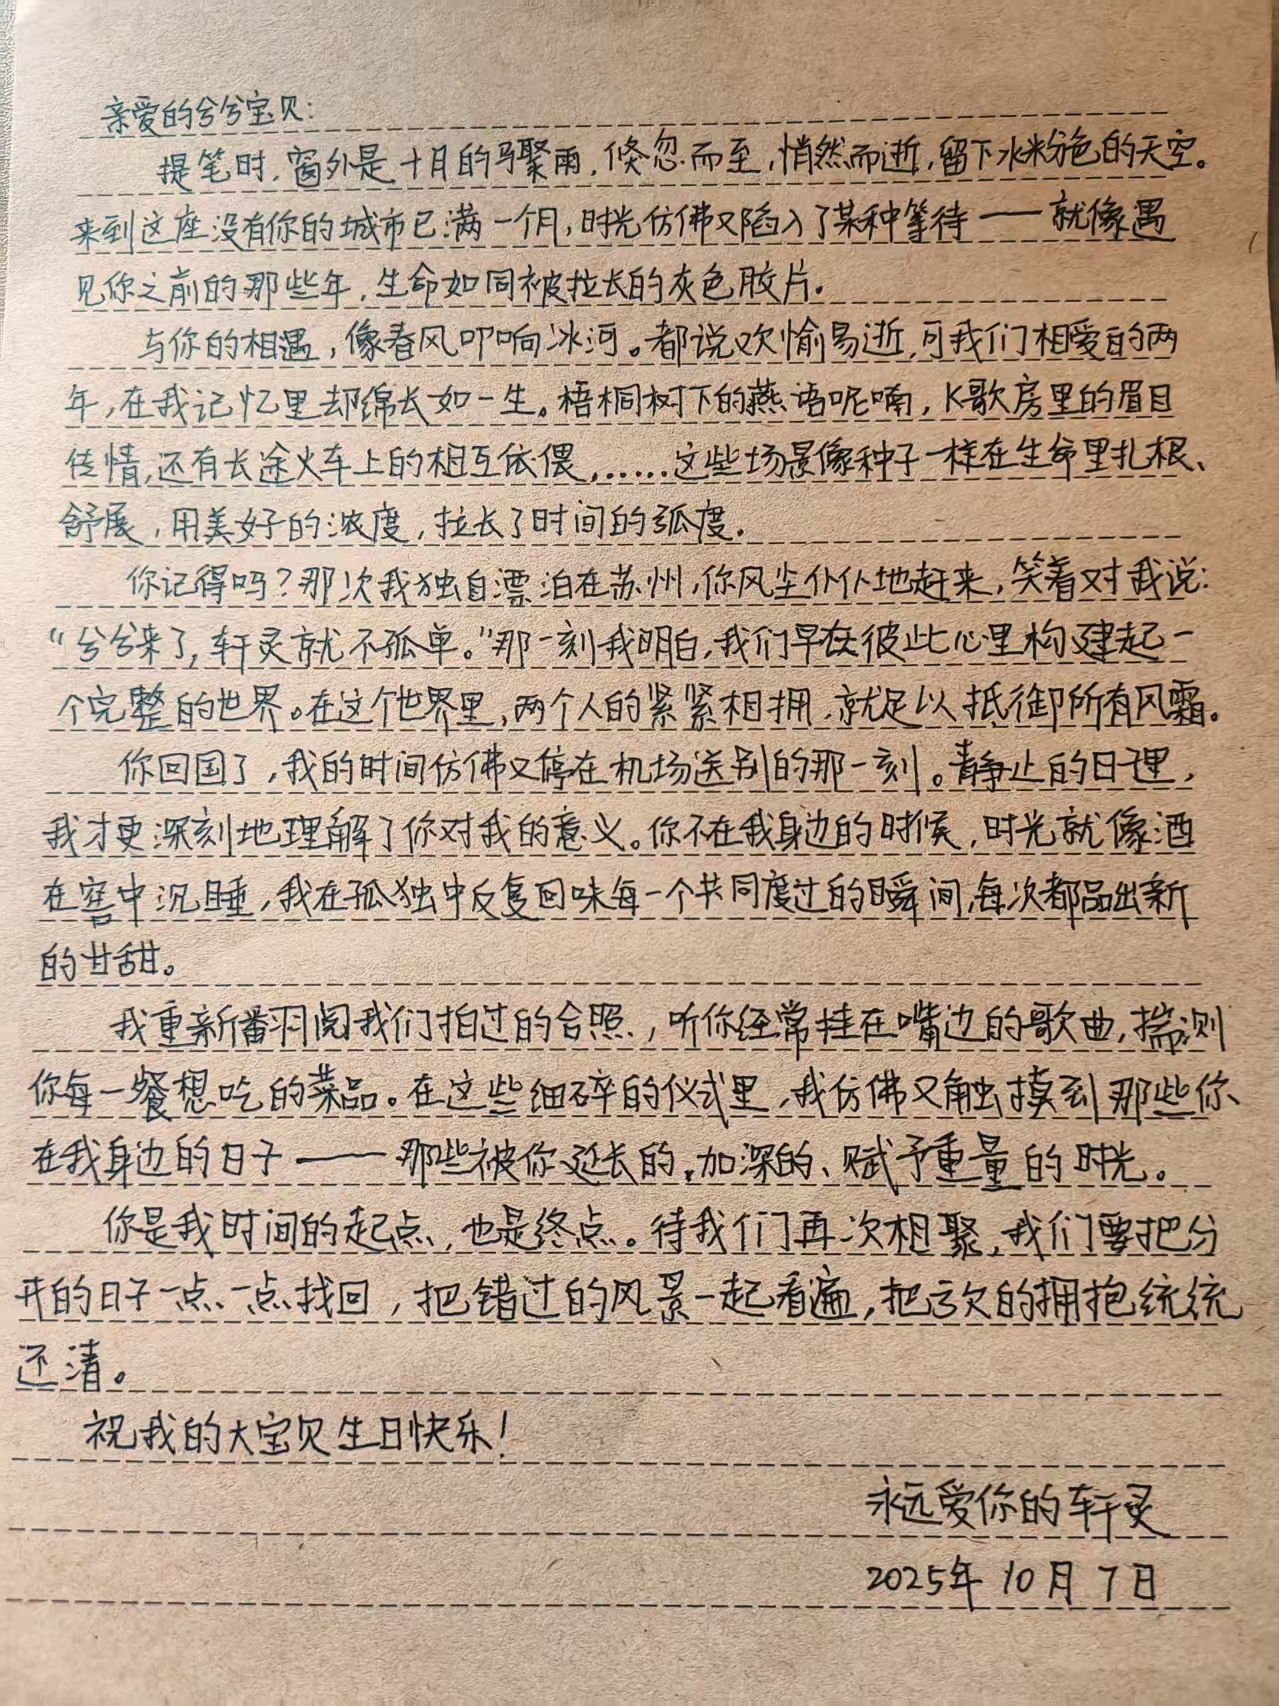 亲爱的兮兮宝贝:
提笔时,窗外是十月的骤雨,倏忽而至,悄然而逝,留下水粉色的天空。
来到这座没有你的城市已满一个月,时光仿佛又陷入了某种等待——就像遇
见你之前的那些年,生命如同被拉长的灰色胶片。
与你的相遇,像春风叩响冰河。都说欢愉易逝,可我们相爱的两
年,在我记忆里却绵长如一生。梧桐树下的燕语呢喃,K歌房里的眉目
传情,还有长途火车上的相互依偎,……这些场景像种子一样在生命里扎根、
舒展,用美好的浓度,拉长了时间的弧度.
你记得吗?那次我独自漂泊在苏州,你风尘仆仆地赶来,笑着对我说:
“兮兮来了,轩灵就不孤单。”那一刻我明白,我们早在彼此心里构建起一
个完整的世界。在这个世界里,两个人的紧紧相拥,就足以抵御所有风霜。
你回国了,我的时间仿佛又停在机场送别的那一刻。静止的日子里,
我才更深刻地理解了你对我的意义。你不在我身边的时候,时光就像酒
在窖中沉睡,我在孤独中反复回味每一个共同度过的瞬间,每次都品出新
的甘甜。
我重新翻阅我们拍过的合照,听你经常挂在嘴边的歌曲,揣测
你每一餐想吃的菜品。在这些细碎的仪式里,我仿佛又触摸到那些你
在我身边的日子——那些被你延长的、加深的、赋予重量的时光。
你是我时间的起点,也是终点。待我们再次相聚,我们要把分
开的日子一点一点找回,把错过的风景一起看遍,把亏欠的拥抱统统
还清。
祝我的大宝贝生日快乐!
永远爱你的轩灵
2025年10月7日